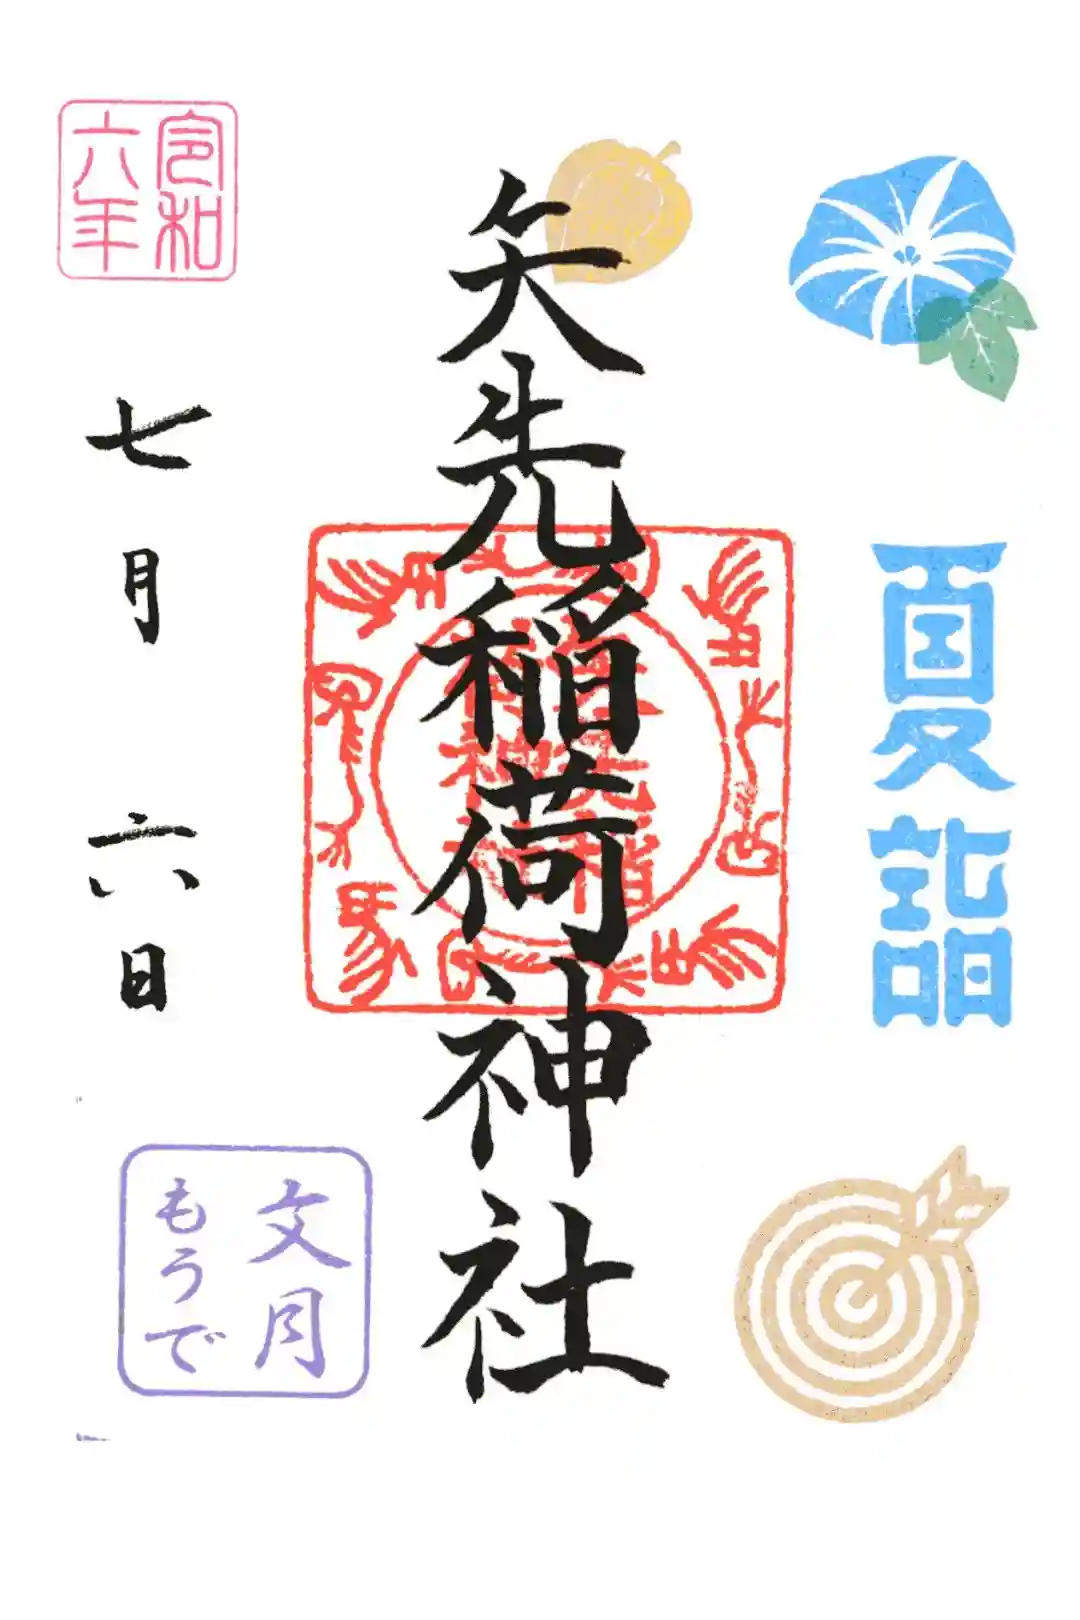 夏詣
矢先稲荷神社
令和
六年
七月六日
文月
もうで